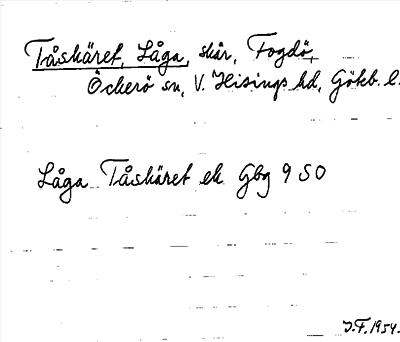 Tåskäret, Låga, skär, Fogdö,
Öckerö sn, V. Hisings hd, Göteb. l.
Låga Tåskäret ek Gbg 9 SO
J.F. 1954.